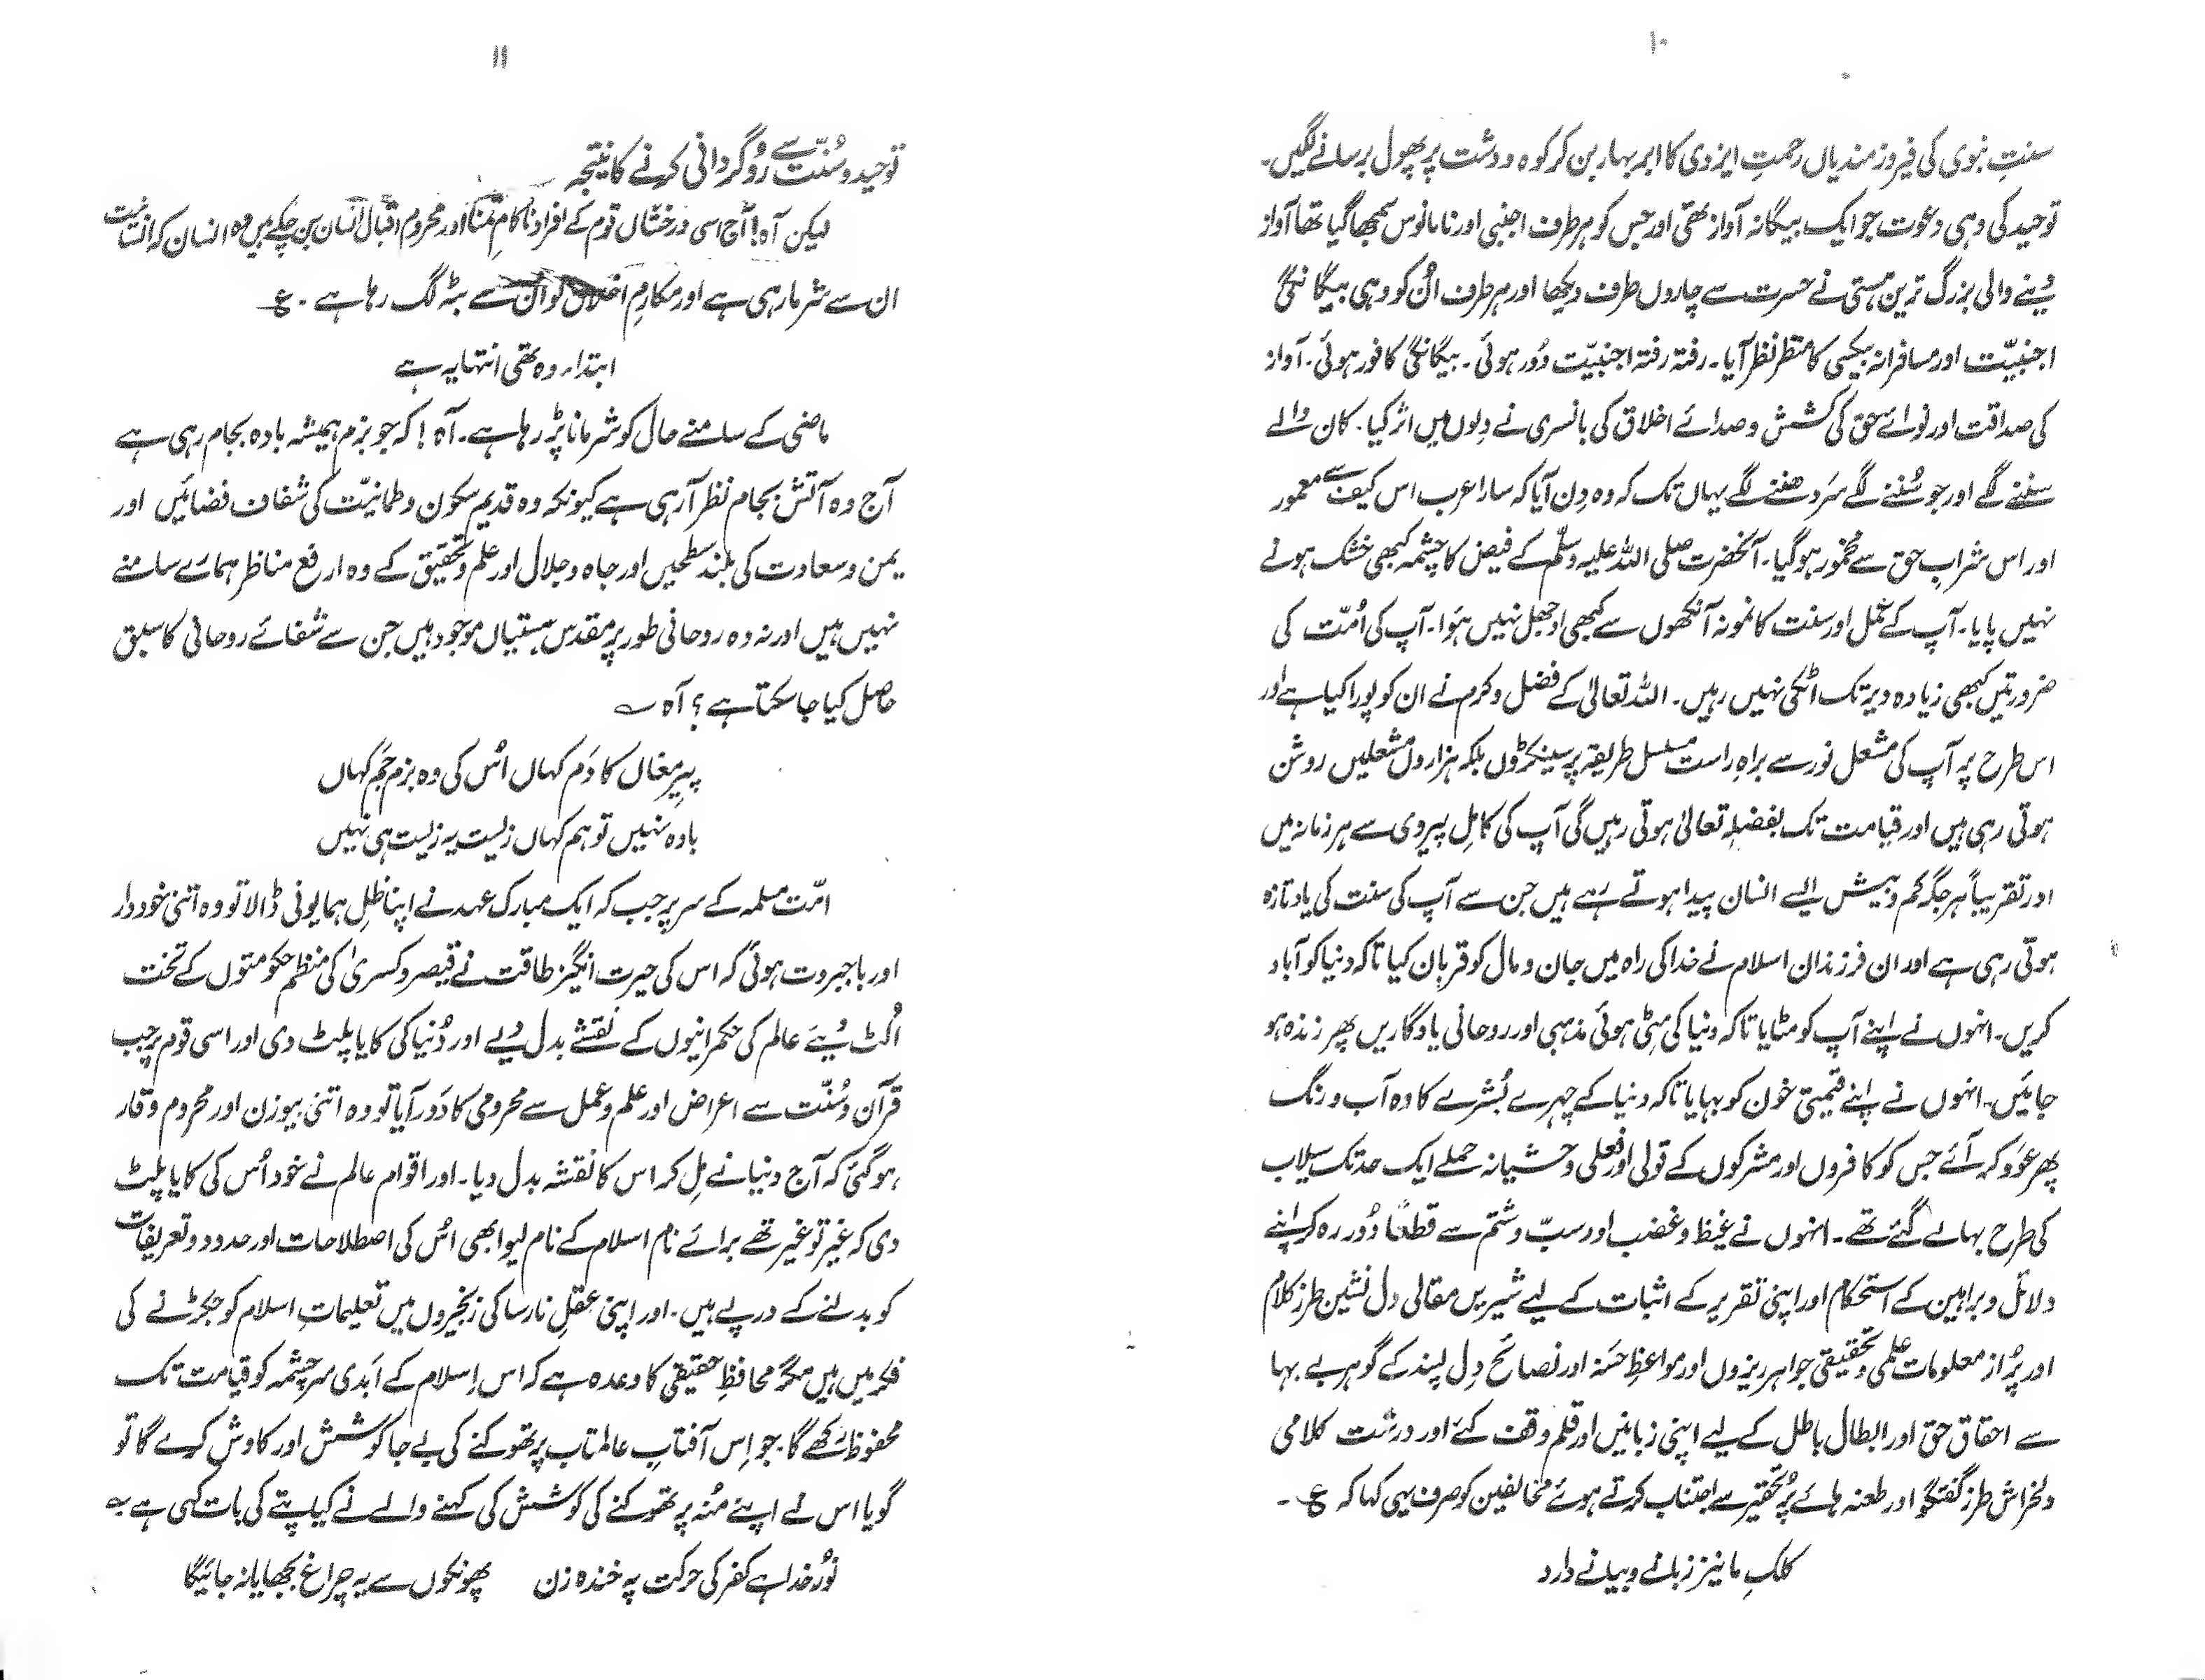 ۱۰
سنتِ نبوی کی فیروزمندیاں رحمتِ ایزدی کا ابرِ بہار بن کر کوہ و دشت پر پھول برسانے لگیں۔
توحید کی وہی دعوت جو ایک بیگانہ آواز تھی اور جس کو ہر طرف اجنبی اور نامانوس سمجھا گیا تھا آواز
دینے والی بزرگ ترین ہستی نے حسرت سے چاروں طرف دیکھا اور ہر طرف اُن کو وہی بیگانگی
اجنبیّت اور مسافرانہ بیکسی کا منظر نظر آیا۔ رفتہ رفتہ اجنبیّت دُور ہوئی۔ بیگانگی کافور ہوئی۔ آواز
کی صداقت اور نوائے حق کی کشش و صدائے اخلاق کی بانسری نے دِلوں میں اثر کیا۔ کان والے
سننے لگے اور جو سُننے لگے سَر دھننے لگے یہاں تک کہ وہ دِن آیا کہ سارا عرب اس کیف سے معمور
اور اس شرابِ حق سے مخمور ہو گیا۔ آنحضرت صلی اللہ علیہ وسلّم کے فیض کا چشمہ کبھی خشک ہونے
نہیں پایا۔ آپ کے عمل اور سنت کا نمونہ آنکھوں سے کبھی اوجھل نہیں ہوٴا۔ آپ کی اُمّت کی
ضرورتیں کبھی زیادہ دیر تک اٹکی نہیں رہیں۔ اللہ تعالیٰ کے فضل و کرم نے ان کو پورا کیا ہے اور
اس طرح پر آپ کی مشعلِ نور سے براہِ راست مسلسل طریقہ پر سینکڑوں بلکہ ہزاروں مشعلیں روشن
ہوتی رہی ہیں اور قیامت تک بفضلہٖ تعالیٰ ہوتی رہیں گی آپ کی کامِل پیروی سے ہر زمانہ میں
اور تقریباً ہر جگہ کم و بیش ایسے انسان پیدا ہوتے رہے ہیں جن سے آپ کی سنت کی یاد تازہ
ہوتی رہی ہے اور ان فرزندانِ اسلام نے خدا کی راہ میں جان و مال کو قربان کیا تاکہ دنیا کو آباد
کریں۔ انہوں نے اپنے آپ کو مٹایا تاکہ دنیا کی مِٹی ہوئی مذہبی اور روحانی یادگاریں پھر زندہ ہو
جائیں۔ انہوں نے اپنے قیمتی خون کو بہایا تاکہ دنیا کے چہرے بُشرے کا وہ آب و رنگ
پھر عود کر آئے جس کو کافروں اور مشرکوں کے قولی اور فعلی وحشیانہ حملے ایک حد تک سیلاب
کی طرح بہا لے گئے تھے۔ انہوں نے غیظ و غضب اور سبّ و شتم سے قطعًا دُور رہ کر اپنے
دلائل و براہین کے استحکام اور اپنی تقریر کے اثبات کے لیے شیریں مقالی دل نشین طرزِ کلام
اور پُر از معلومات علمی و تحقیقی جواہر ریزوں اور مواعظِ حسنہ اور نصائح دِل پسند کے گوہر بے بہا
سے احقاقِ حق اور ابطالِ باطل کے لیے اپنی زبانیں اور قلم وقف کئے اور درشت کلامی
دلخراش طرز گفتگو اور طعنہ ہائے پُر تحقیر سے اجتناب کرتے ہوئے مخالفین کو صرف یہی کہا کہ ع۔
کلکِ ما نیز زبانے و بیانے دارد
۱۱
توحید و سُنّت سے رُوگردانی کرنے کا نتیجہ
لیکن آہ! آج اسی درخشاں قوم کے افراد ناکامِ تمنّا اور محرومِ اقبال انسان بن چکے ہیں وہ انسان کہ انسانیت
ان سے شرما رہی ہے اور مکارمِ اخلاق کو اُن سے بٹہ لگ رہا ہے۔ ع
ابتداء وہ تھی انتہا یہ ہے
ماضی کے سامنے حال کو شرمانا پڑ رہا ہے۔ آہ! کہ جو بزم ہمیشہ بادہ بجام رہی ہے
آج وہ آتش بجام نظر آ رہی ہے کیونکہ وہ قدیم سکون و طمانیّت کی شفاف فضائیں اور
یمن و سعادت کی بلند سطحیں اور جاہ و جلال اور علم و تحقیق کے وہ ارفع مناظر ہمارے سامنے
نہیں ہیں اور نہ وہ روحانی طور پر مقدس ہستیاں موجود ہیں جن سے شفائے روحانی کا سبق
حاصل کیا جا سکتا ہے؟ آہ ؎
پیرِ مغاں کا دَم کہاں اُس کی وہ بزمِ جَم کہاں
بادہ نہیں تو ہم کہاں زیست یہ زیست ہی نہیں
امّت مسلمہ کے سر پر جب کہ ایک مبارک عہد نے اپنا ظلِ ہمایونی ڈالا تو وہ اتنی خوددار
اور باجبروت ہوئی کہ اس کی حیرت انگیز طاقت نے قیصر و کسریٰ کی منظم حکومتوں کے تخت
اُلٹ دیئے عالم کی حکمرانیوں کے نقشے بدل دیے اور دُنیا کی کایا پلٹ دی اور اسی قوم پر جب
قرآن و سُنّت سے اعراض اور علم و عمل سے محرومی کا دَور آیا تو وہ اتنی بیوزن اور محروم وقار
ہو گئی کہ آج دنیا نے مِل کر اس کا نقشہ بدل دیا۔ اور اقوامِ عالم نے خود اُس کی کایا پلٹ
دی کہ غیر تو غیر تھے برائے نام اسلام کے نام لیوا بھی اُس کی اصطلاحات اور حدود و تعریفات
کو بدلنے کے درپے ہیں۔ اور اپنی عقلِ نارسا کی زنجیروں میں تعلیماتِ اسلام کو جکڑنے کی
فکر میں ہیں مگر محافظِ حقیقی کا وعدہ ہے کہ اس اِسلام کے اَبدی سرچشمہ کو قیامت تک
محفوظ رکھے گا۔ جو اِس آفتابِ عالمتاب پر تھوکنے کی بے جا کوشش اور کاوش کرے گا تو
گویا اس نے اپنے مُنہ پر تھوکنے کی کوشش کی کہنے والے نے کیا پتے کی بات کہی ہے ؎
نُورِ خدا ہے کفر کی حرکت پہ خندہ زن پھونکوں سے یہ چراغ بجھایا نہ جائیگا